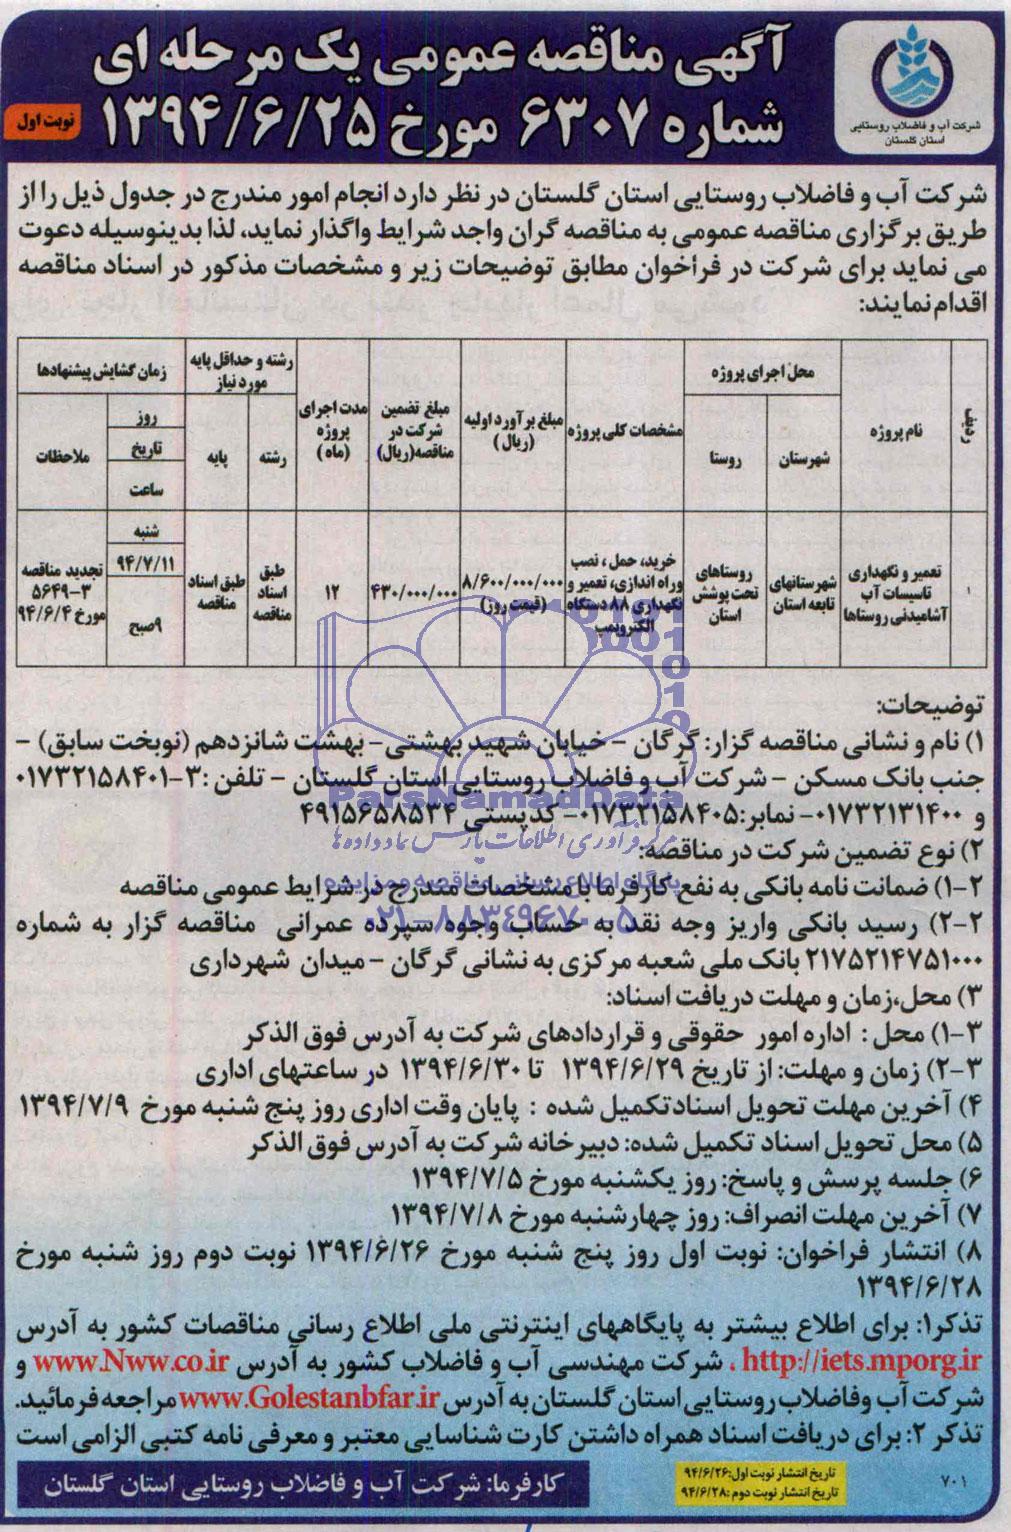 آگهی مناقصه عمومی یک مرحله ای
شماره ۶۳۰۷ مورخ ۱۳۹۴/۶/۲۵
نوبت اول
شرکت آب و فاضلاب روستایی
استان گلستان
شرکت آب و فاضلاب روستایی استان گلستان در نظر دارد انجام امور مندرج در جدول ذیل را از
طریق برگزاری مناقصه عمومی به مناقصه گران واجد شرایط واگذار نماید، لذا بدینوسیله دعوت
می نماید برای شرکت در فراخوان مطابق توضیحات زیر و مشخصات مذکور در اسناد مناقصه
اقدام نمایند:
ردیف
نام پروژه
محل اجرای پروژه
شهرستان
روستا
مشخصات کلی پروژه
مبلغ برآورد اولیه
(ریال)
مبلغ تضمین
شرکت در
مناقصه(ریال)
مدت اجرای
پروژه
(ماه)
رشته و حداقل پایه
مورد نیاز
رشته
پایه
زمان گشایش پیشنهادها
روز
تاریخ
ساعت
ملاحظات
۱
تعمیر و نگهداری
تاسیسات آب
آشامیدنی روستاها
شهرستانهای
تابعه استان
روستاهای
تحت پوشش
استان
خرید، حمل، نصب
و راه اندازی، تعمیر و
نگهداری ۸۸ دستگاه
الکتروپمپ
۸/۶۰۰/۰۰۰/۰۰۰
(قیمت روز)
۴۳۰/۰۰۰/۰۰۰
۱۲
طبق
اسناد
مناقصه
طبق اسناد
مناقصه
شنبه
۹۴/۷/۱۱
۹صبح
تجدید مناقصه
۵۶۴۹-۳
مورخ ۹۴/۶/۴
توضیحات:
۱) نام و نشانی مناقصه گزار: گرگان – خیابان شهید بهشتی- بهشت شانزدهم (نوبخت سابق) –
جنب بانک مسکن – شرکت آب و فاضلاب روستایی استان گلستان – تلفن :۳-۰۱۷۳۲۱۵۸۴۰۱
و ۰۱۷۳۲۱۳۱۴۰۰- نمابر:۰۱۷۳۲۱۵۸۴۰۵- کدپستی ۴۹۱۵۶۵۸۵۳۴
۲) نوع تضمین شرکت در مناقصه:
۲-۱) ضمانت نامه بانکی به نفع کارفرما با مشخصات مندرج در شرایط عمومی مناقصه
۲-۲) رسید بانکی واریز وجه نقد به حساب وجوه سپرده عمرانی مناقصه گزار به شماره
۲۱۷۵۲۱۴۷۵۱۰۰۰ بانک ملی شعبه مرکزی به نشانی گرگان – میدان شهرداری
۳) محل،زمان و مهلت دریافت اسناد:
۳-۱) محل : اداره امور حقوقی و قراردادهای شرکت به آدرس فوق الذکر
۳-۲) زمان و مهلت: از تاریخ ۱۳۹۴/۶/۲۹ تا ۱۳۹۴/۶/۳۰ در ساعتهای اداری
۴) آخرین مهلت تحویل اسناد تکمیل شده : پایان وقت اداری روز پنج شنبه مورخ ۱۳۹۴/۷/۹
۵) محل تحویل اسناد تکمیل شده: دبیرخانه شرکت به آدرس فوق الذکر
۶) جلسه پرسش و پاسخ: روز یکشنبه مورخ ۱۳۹۴/۷/۵
۷) آخرین مهلت انصراف: روز چهارشنبه مورخ ۱۳۹۴/۷/۸
۸) انتشار فراخوان: نوبت اول روز پنج شنبه مورخ ۱۳۹۴/۶/۲۶ نوبت دوم روز شنبه مورخ
۱۳۹۴/۶/۲۸
تذکر۱: برای اطلاع بیشتر به پایگاههای اینترنتی ملی اطلاع رسانی مناقصات کشور به آدرس
http://iets.mporg.ir ، شرکت مهندسی آب و فاضلاب کشور به آدرس www.Nww.co.ir و
شرکت آب و فاضلاب روستایی استان گلستان به آدرس www.Golestanbfar.ir مراجعه فرمائید.
تذکر ۲: برای دریافت اسناد همراه داشتن کارت شناسایی معتبر و معرفی نامه کتبی الزامی است
۷۰۱
تاریخ انتشار نوبت اول:۹۴/۶/۲۶
تاریخ انتشار نوبت دوم :۹۴/۶/۲۸
کارفرما: شرکت آب و فاضلاب روستایی استان گلستان
ParsNamadData
مرکز فرآوری اطلاعات پارس نماد داده ها
پایگاه اطلاع رسانی مناقصه و مزایده
۰۲۱-۸۸۳۴۹۶۷۰-۵